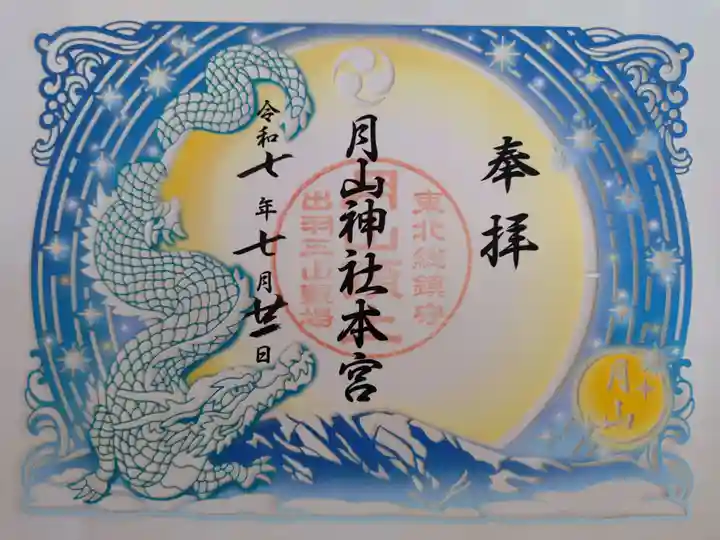 奉拝
月山神社本宮
東北総鎮守
月山頂上
出羽三山霊場
令和七年七月廿一日
月山